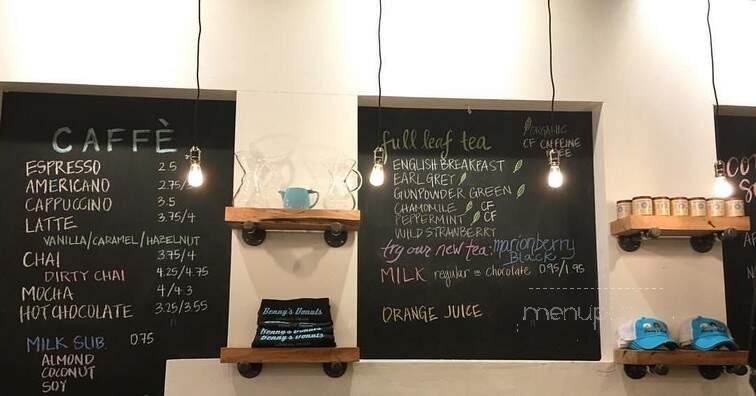 CAFFÈ
ESPRESSO 2.5
AMERICANO 2.75/3
CAPPUCCINO 3.5
LATTE 3.75/4
VANILLA/CARAMEL/HAZELNUT
CHAI 3.75/4
DIRTY CHAI 4.25/4.75
MOCHA 4/4.3
HOT CHOCOLATE 3.25/3.55
MILK SUB. 0.75
ALMOND
COCONUT
SOY
Benny's Donuts
full leaf tea
ORGANIC
CF CAFFEINE
FREE
ENGLISH BREAKFAST
EARL GREY
GUNPOWDER GREEN
CHAMOMILE CF
PEPPERMINT CF
WILD STRAWBERRY
try our new tea: marionberry
BLACK
MILK regular or chocolate 0.95/1.95
ORANGE JUICE
menupi